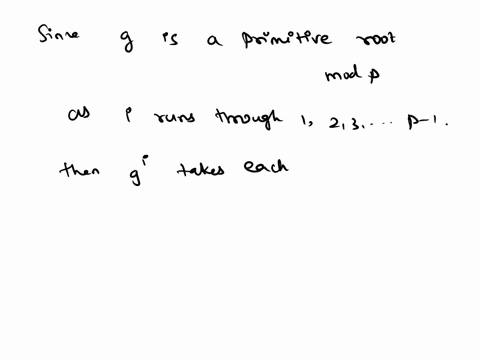 Since g is a primitive root
mod p
as i runs through 1, 2, 3, .... p-1.
then g^i takes each